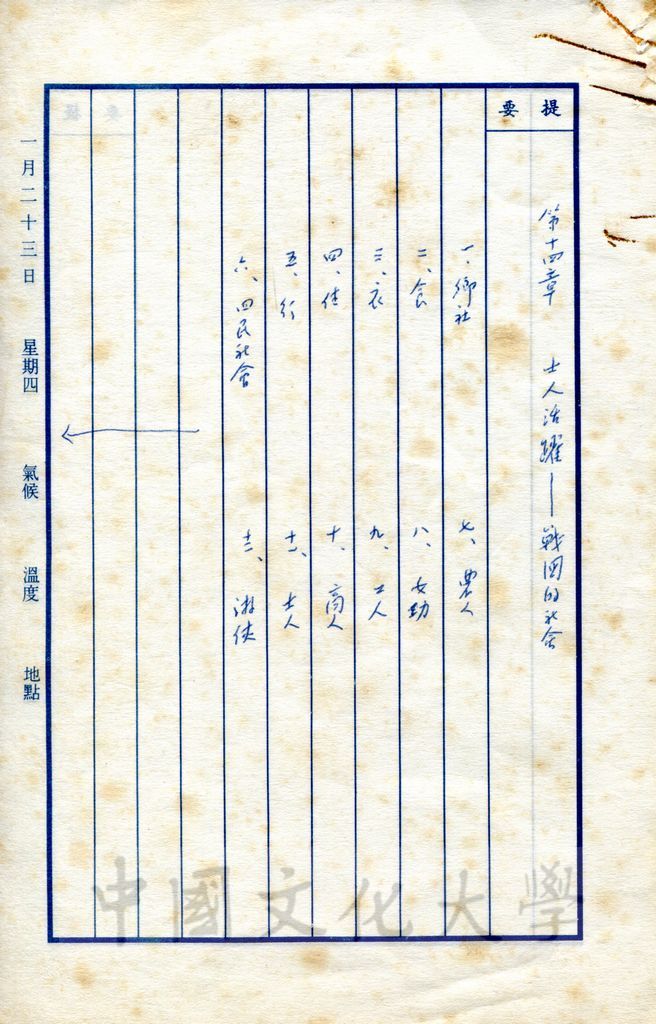 提要
第十四章 士人活躍—戰國的社會
一、鄉社
二、食
三、衣
四、住
五、行
六、四民社會
七、農人
八、女功
九、工人
十、商人
十一、士人
十二、游俠
一月二十三日 星期四 氣候 溫度 地點
中國文化大學